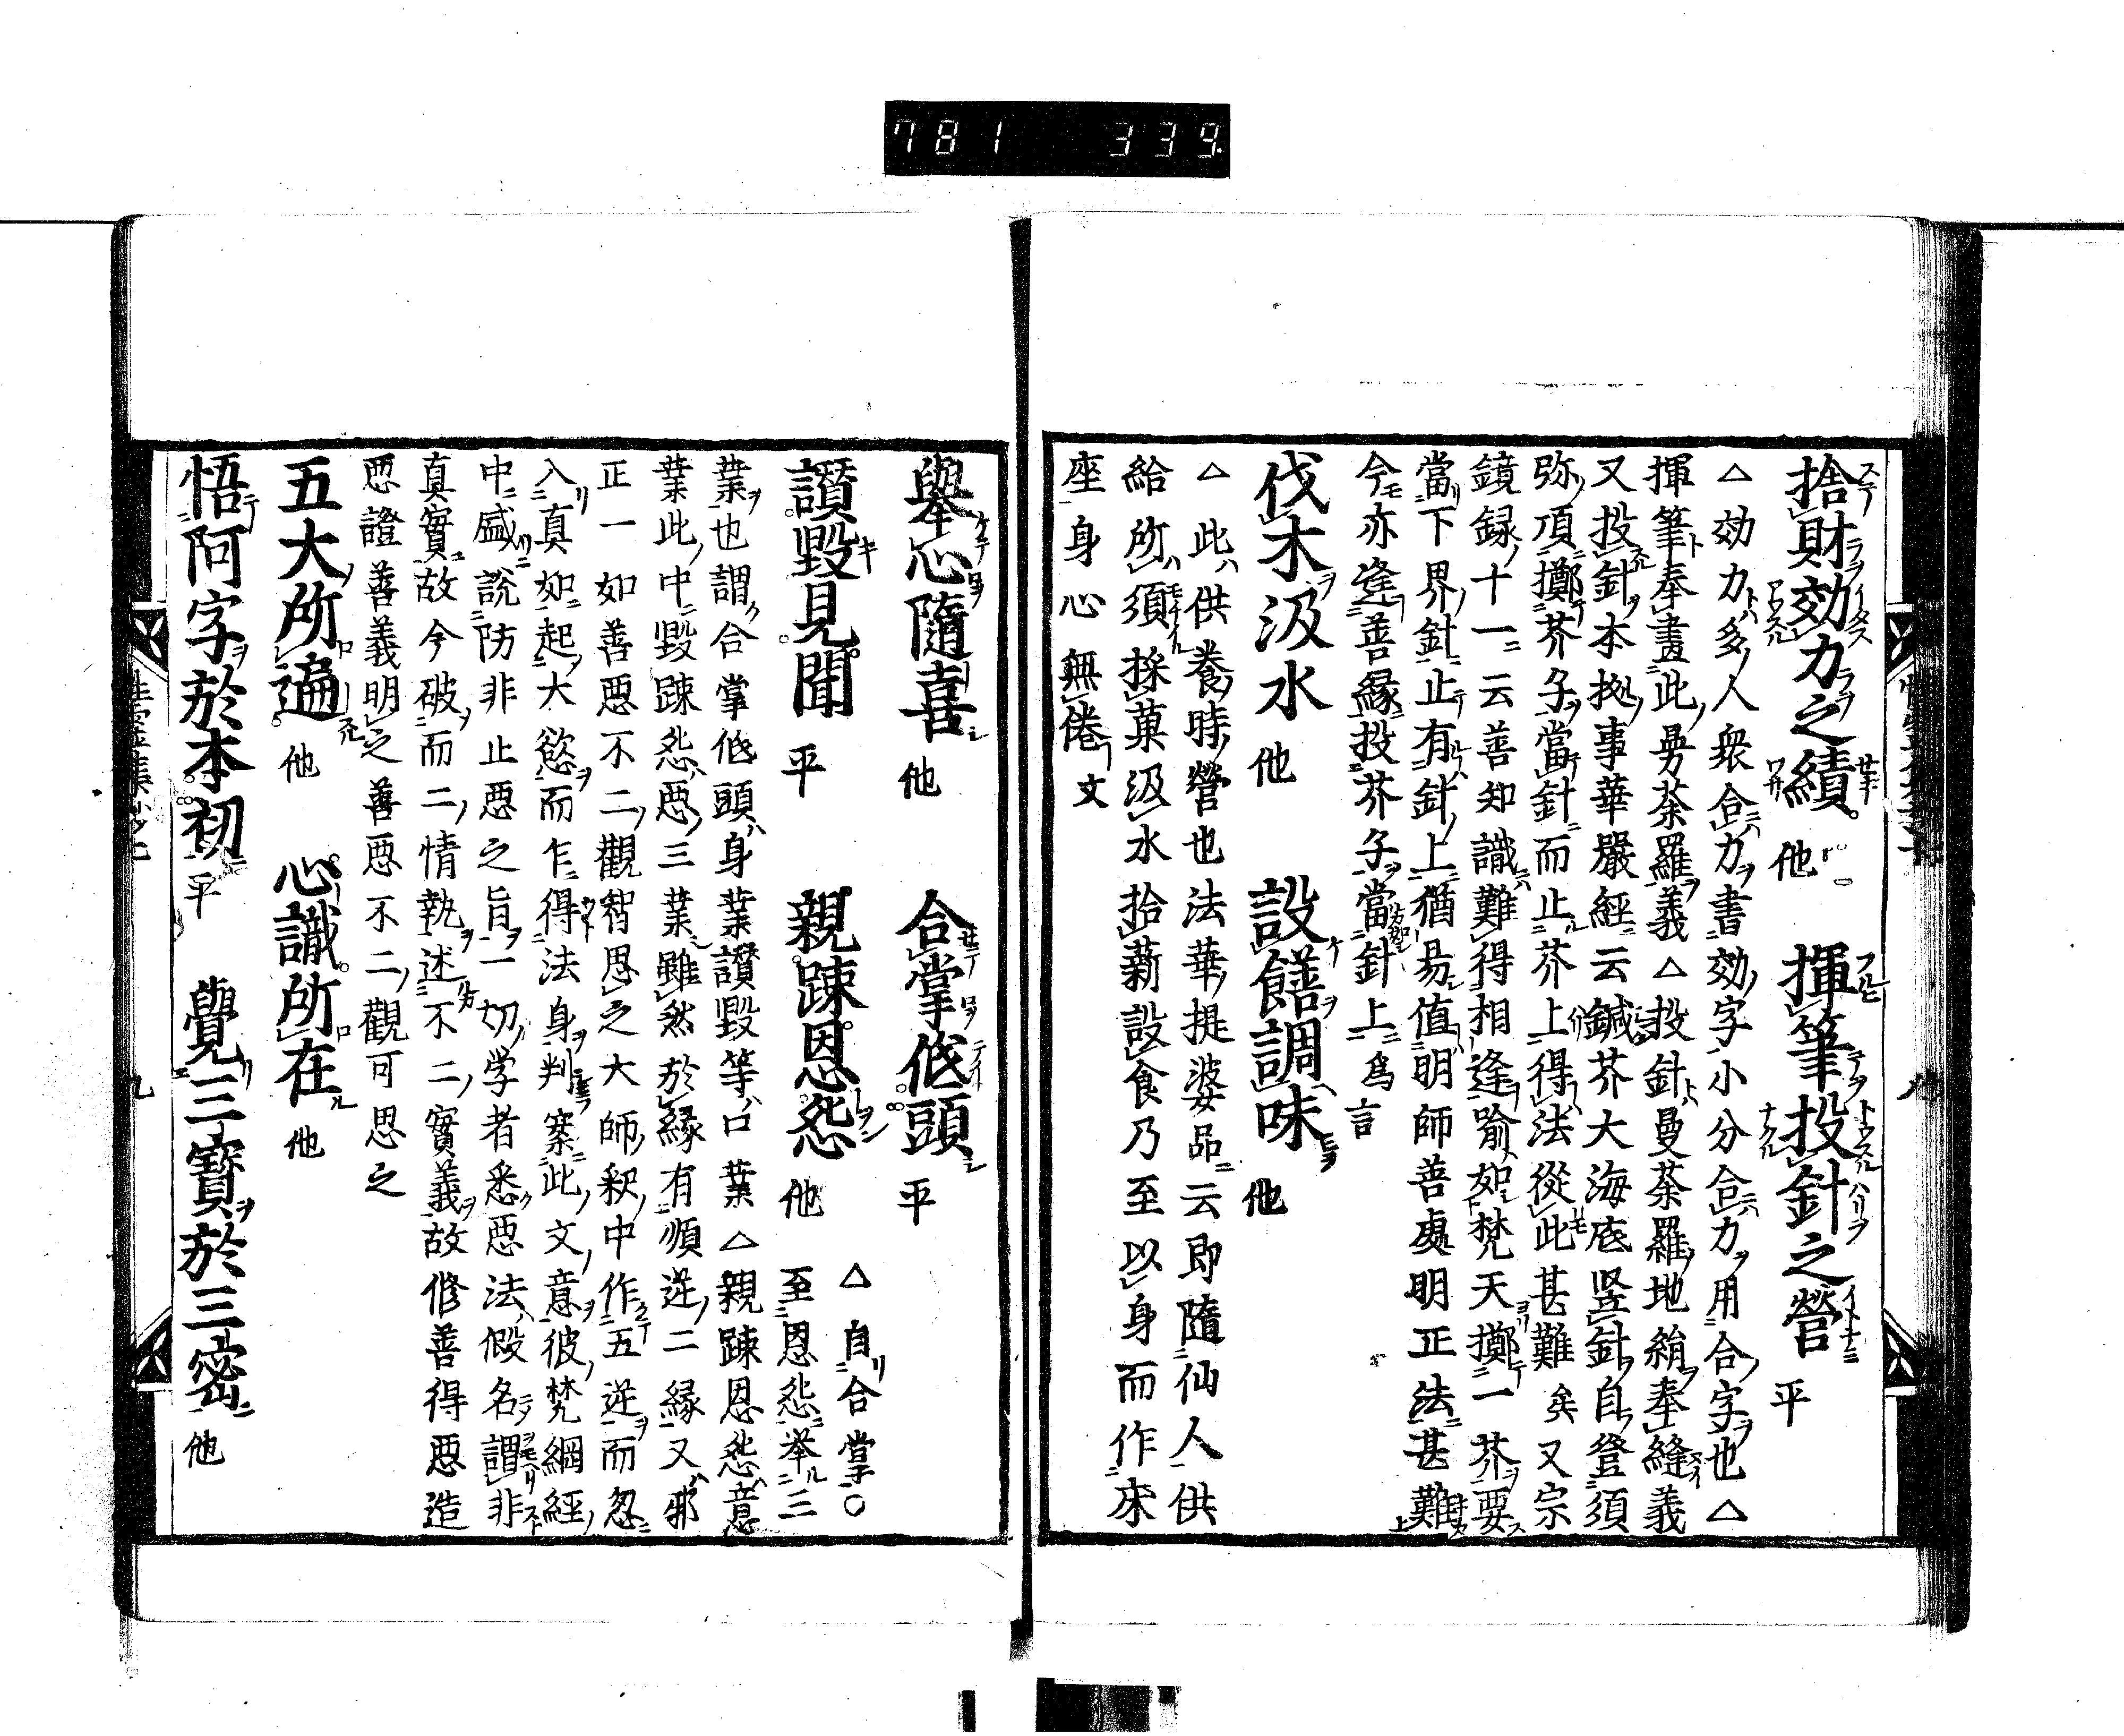 781 339.
捨財効力之績 他 揮筆投針之營 平
△効力多人衆合力書効字小分合力用合字也△
揮筆奉畫此曼荼羅義△投針曼荼羅地絹奉縫義
又投針本拠事華嚴經云鍼芥大海底竖針自登須
弥頂擲芥子當針而止芥上得法從此甚難矣又宗
鏡録十一云善知識難得相逢喻如梵天擲一芥要
當下界針止有針上猶易值明師善處明正法甚難
今亦逢善縁投芥子當針上爲言
伐木汲水 他 設饍調味 他
△此供養時營也法華提婆品云即隨仙人供
給所須採菓汲水拾薪設食乃至以身而作床
座身心無倦文
舉心隨喜 他 合掌低頭 平
△自合掌○
讃毀見聞 平 親踈恩怨 他
至恩怨举三
業也謂合掌低頭身業讃毀等口業△親踈恩怨意
業此中毀踈怨惡三業雖然於縁有順逆二縁又邪
正一如善惡不二觀智思之大師釈中作五逆而忽
入真如起大慾而乍得法身判案此文意彼梵網經
中盛説防非止惡之旨一切学者悉惡法假名謂非
真實故今破而二情執述不二實義故修善得惡造
惡證善義明之善惡不二觀可思之
五大所遍 他 心識所在 他
悟阿字於本初 平 覺三寶於三密 他
九